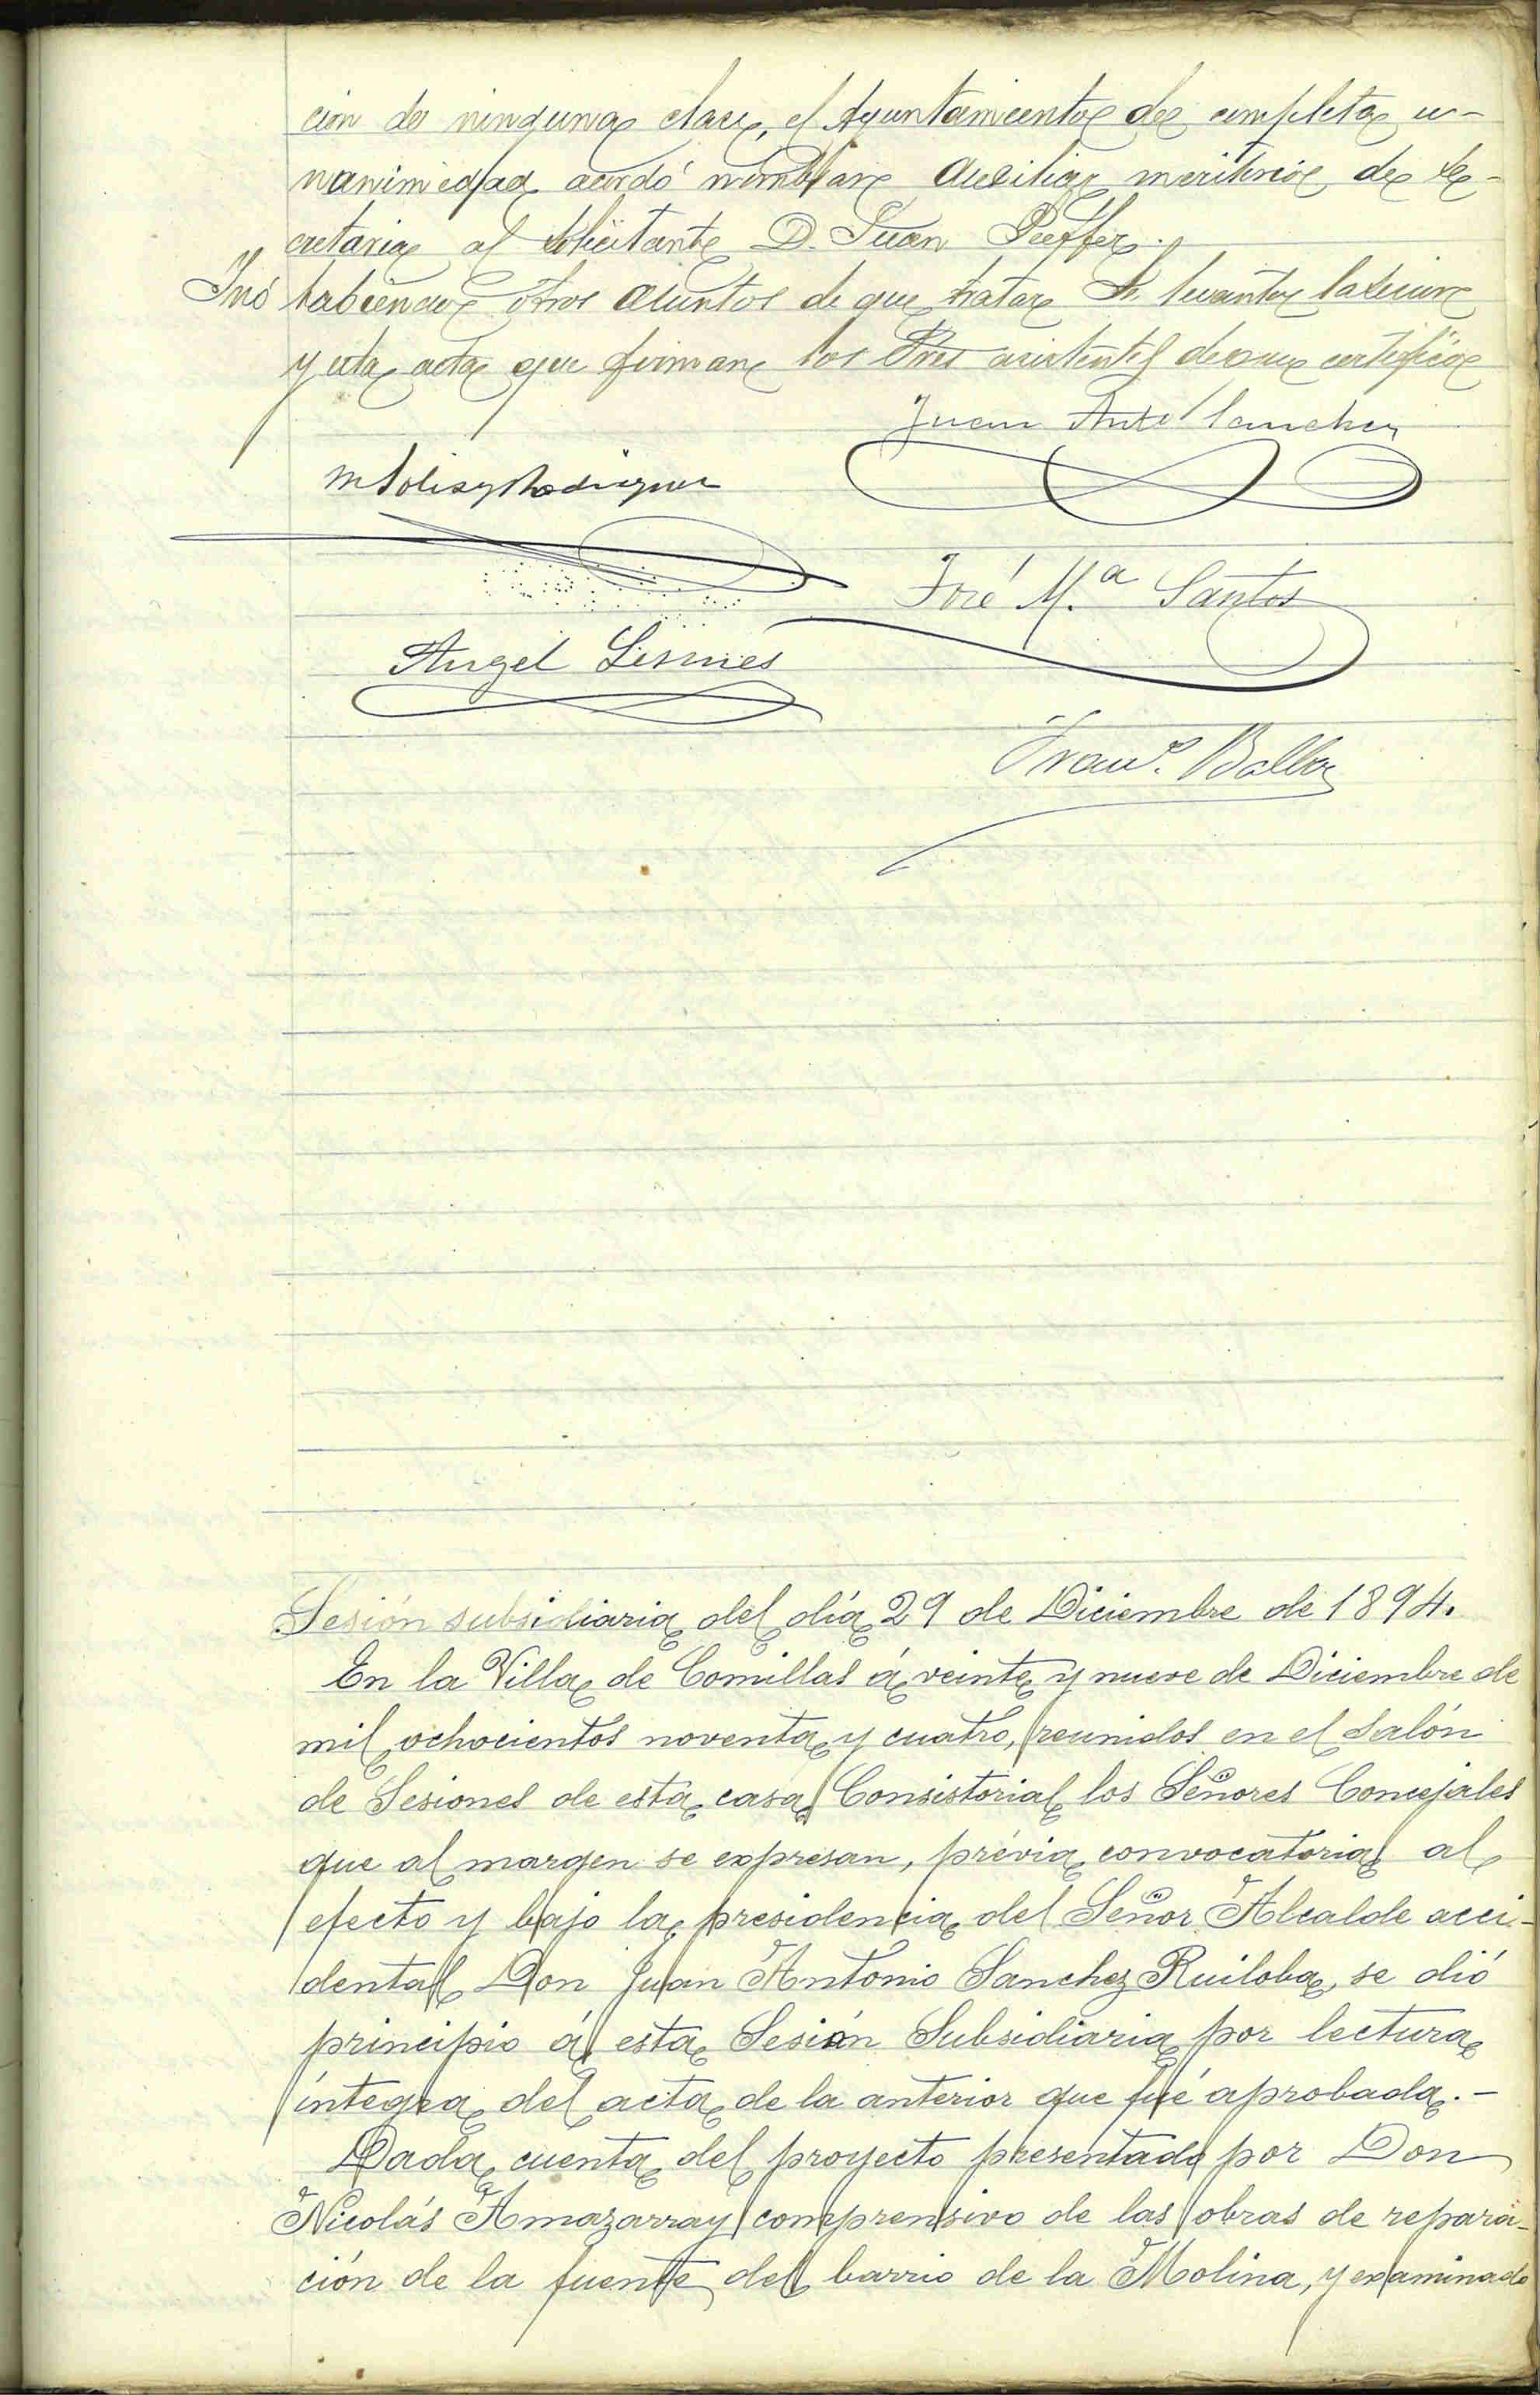 ción de ninguna clase, el Ayuntamiento de completa u-
nanimidad acordó nombrar Auxiliar meritorio de Se-
cretaria al solicitante D. Juan Peeffer.
Y no habiendo otros asuntos de que tratar se levantó la sesion
y esta acta que firman los Sres asistentes de que certifico
Juan Anto Sanchez
M Solis y Rodriguez
José M.ª Santos
Angel Lesmes
Franco. Balbo
Sesión subsidiaria del día 29 de Diciembre de 1894.
En la Villa de Comillas á veinte y nueve de Diciembre de
mil ochocientos noventa y cuatro, reunidos en el salón
de Sesiones de esta casa Consistorial los Señores Concejales
que al margen se expresan, prévia convocatoria al
efecto y bajo la presidencia del Señor Alcalde acci-
dental Don Juan Antonio Sanchez Ruiloba, se dió
principio á esta Sesión Subsidiaria por lectura
íntegra del acta de la anterior que fué aprobada. -
Dada cuenta del proyecto presentado por Don
Nicolás Amazarray comprensivo de las obras de repara-
ción de la fuente del barrio de la Molina, y examinado